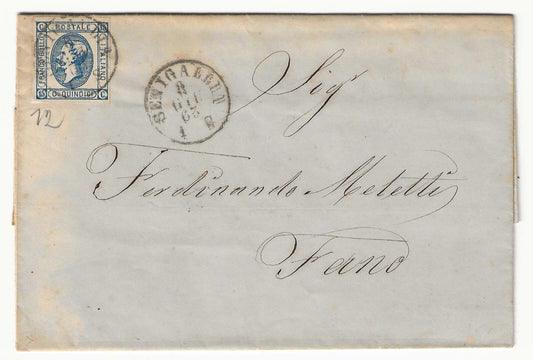 FRANCOBOLLO
POSTALE
ITALIANO
C. QUINDICI
15
C
12
SENIGALLIA
8
GIU
63
1 S
Sigr
Ferdinando Meletti
Fano